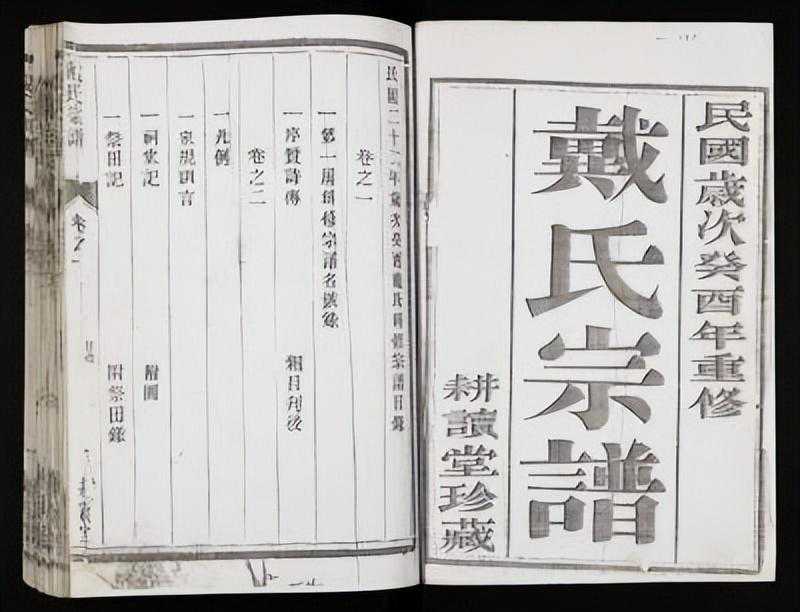 民國歲次癸酉年重修
戴氏宗譜
耕讀堂珍藏
民國二十二年歲次癸酉戴氏重修宗譜目錄
卷之一
一第一屆重修宗譜名録
一序贊詩傳 細目列後
卷之二
一凡例
一家規訓言
一祠堂記 附圖
一祭田記 附祭田錄
戴氏宗譜
卷之一